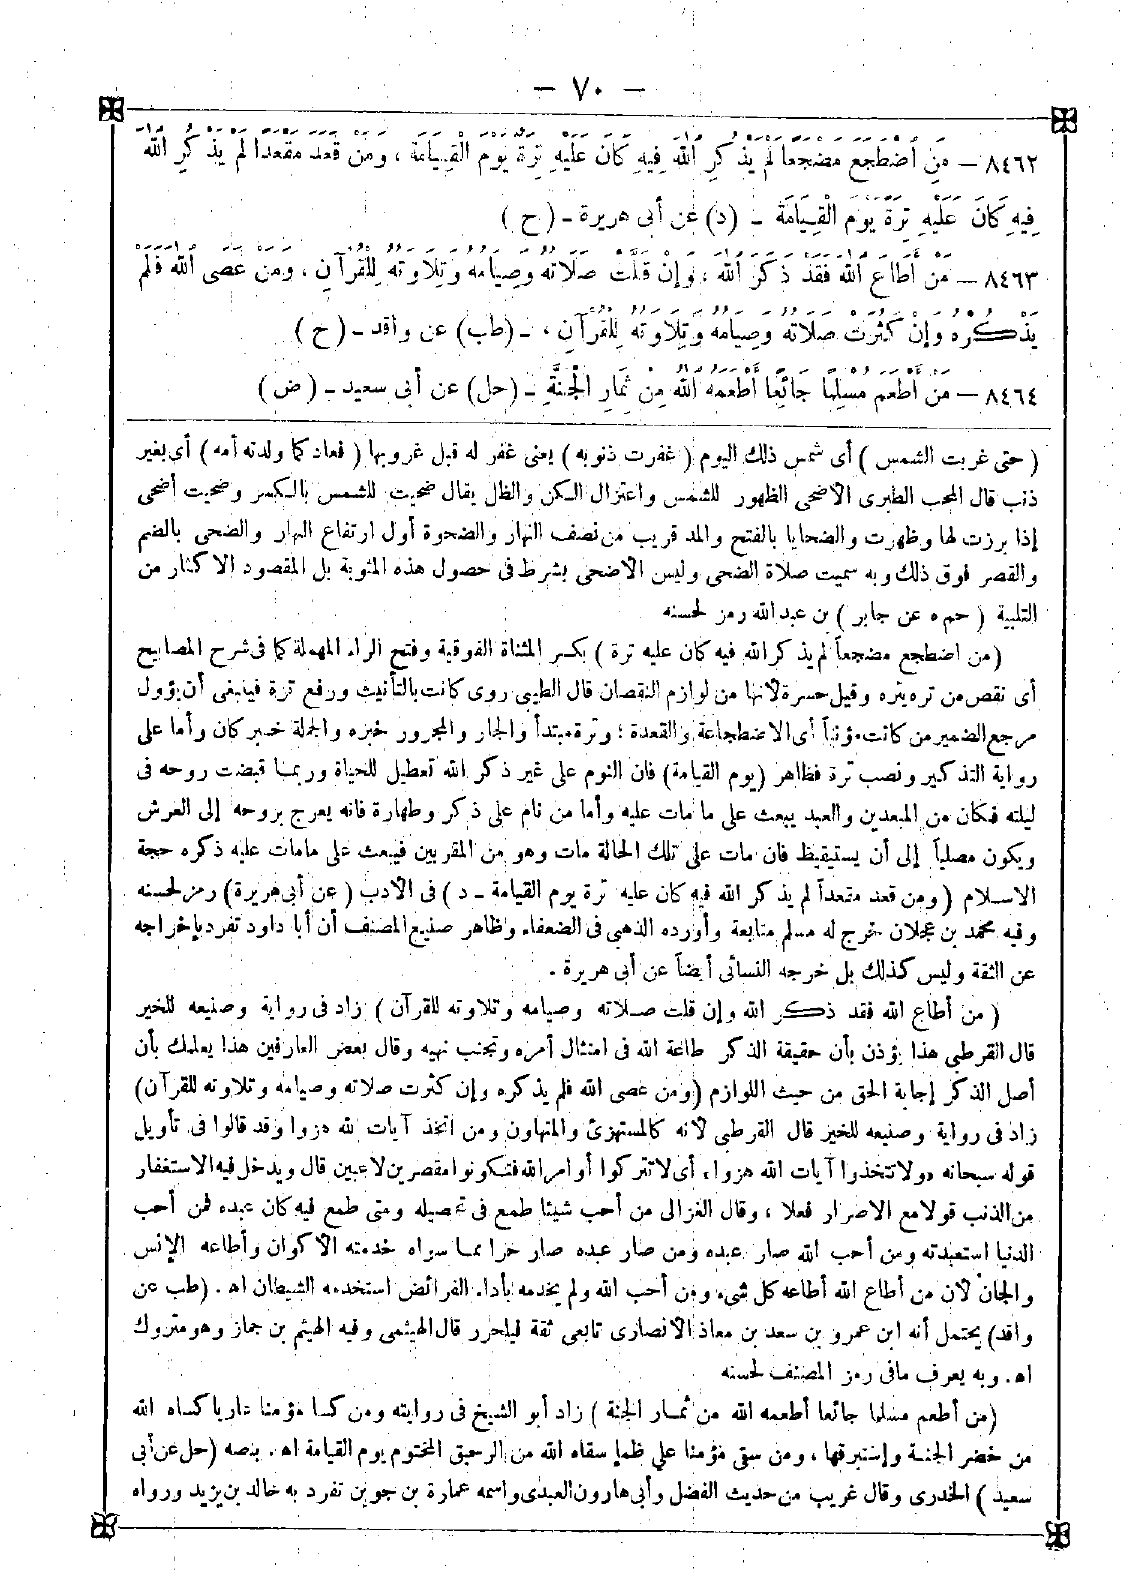 — ٧٠ —
٨٤٦٢ — مَنِ اضْطَجَعَ مَضْجَعًا لَمْ يَذْكُرِ اللّٰهَ فِيهِ كَانَ عَلَيْهِ تِرَةٌ يَوْمَ الْقِيَامَةِ ، وَمَنْ قَعَدَ مَقْعَدًا لَمْ يَذْكُرِ اللّٰهَ
فِيهِ كَانَ عَلَيْهِ تِرَةً يَوْمَ الْقِيَامَةِ - (د) عن أبى هريرة - ( ح )
٨٤٦٣ — مَنْ أَطَاعَ اللّٰهَ فَقَدْ ذَكَرَ اللّٰهَ ، وَإِنْ قَلَّتْ صَلَاتُهُ وَصِيَامُهُ وَتِلَاوَتُهُ لِلْقُرْآنِ ، وَمَنْ عَصَى اللّٰهَ فَلَمْ
يَذْكُرْهُ وَإِنْ كَثُرَتْ صَلَاتُهُ وَصِيَامُهُ وَتِلَاوَتُهُ لِلْقُرْآنِ ، - (طب) عن واقد - ( ح )
٨٤٦٤ — مَنْ أَطْعَمَ مُسْلِمًا جَائِعًا أَطْعَمَهُ اللّٰهُ مِنْ ثِمَارِ الْجَنَّةِ - (حل) عن أبى سعيد - ( ض )
( حتى غربت الشمس ) أى شمس ذلك اليوم ( غفرت ذنوبه ) يعنى غفر له قبل غروبها ( فعاد كما ولدته أمه ) أى بغير
ذنب قال المحب الطبرى الاضحى الظهور للشمس واعتزال الكن والظل يقال ضحيت للشمس بالكسر وضحيت أضحى
إذا برزت لها وظهرت والضحايا بالفتح والمد قريب من نصف النهار والضحوة أول ارتفاع النهار والضحى بالضم
والقصر فوق ذلك وبه سميت صلاة الضحى وليس الاضحى بشرط فى حصول هذه المثوبة بل المقصود الاكثار من
التلبية ( حم ه عن جابر ) بن عبد الله رمز لحسنه
(من اضطجع مضجعاً لم يذكر الله فيه كان عليه ترة ) بكسر المثناة الفوقية وفتح الراء المهملة كما فى شرح المصابيح
أى نقص من تره يتره وقيل حسرة لانها من لوازم النقصان قال الطيبى روى كانت بالتأنيث ورفع ترة فينبغى أن يؤول
مرجع الضمير من كانت مؤنثاً أى الاضطجاعة والقعدة ؛ وترة مبتدأ والجار والمجرور خبره والجملة خبر كان وأما على
رواية التذكير ونصب ترة فظاهر (يوم القيامة) فان النوم على غير ذكر الله تعطيل للحياة وربما قبضت روحه فى
ليلته فكان من المبعدين والعبد يبعث على ما مات عليه وأما من نام على ذكر وطهارة فانه يعرج بروحه إلى العرش
ويكون مصلياً إلى أن يستيقيظ فان مات على تلك الحالة مات وهو من المقربين فيبعث على مامات عليه ذكره حجة
الاسلام (ومن قعد مقعداً لم يذكر الله فيه كان عليه ترة يوم القيامة - د ) فى الادب ( عن أبى هريرة) رمز لحسنه
وفيه محمد بن عجلان خرج له مسلم متابعة وأورده الذهبى فى الضعفاء وظاهر صنيع المصنف أن أبا داود تفرد بإخراجه
عن الثقة وليس كذلك بل خرجه النسائى أيضاً عن أبى هريرة .
( من أطاع الله فقد ذكر الله وإن قلت صلاته وصيامه وتلاوته للقرآن ) زاد فى رواية وصنيعه للخير
قال القرطبى هذا يؤذن بأن حقيقة الذكر طاعة الله فى امتثال أمره وتجنب نهيه وقال بعض العارفين هذا يعلمك بأن
أصل الذكر إجابة الحق من حيث اللوازم (ومن عصى الله فلم يذكره وإن كثرت صلاته وصيامه وتلاوته للقرآن)
زاد فى رواية وصنيعه للخير قال القرطبى لانه كالمستهزئ والمتهاون ومن اتخذ آيات لله هزوا وقد قالوا فى تأويل
قوله سبحانه «ولا تتخذوا آيات الله هزوا» أى لا تتركوا أوامر الله فتكونوا مقصرين لاعبين قال ويدخل فيه الاستغفار
من الذنب قولا مع الاصرار فعلا ، وقال الغزالى من أحب شيئا طمع فى تحصيله ومتى طمع فيه كان عبده فمن أحب
الدنيا استعبدته ومن أحب الله صار عبده ومن صار عبده صار حرا مما سواه خدمته الاكوان وأطاعه الإنس
والجان لان من أطاع الله أطاعه كل شىء ومن أحب الله ولم يخدمه بأداء الفرائض استخدمه الشيطان اه . (طب عن
واقد) يحتمل أنه ابن عمرو بن سعد بن معاذ الانصارى تابعى ثقة فيلحرر قال الهيثمى وفيه الهيثم بن جماز وهو متروك
اه . وبه يعرف مافى رمز المصنف لحسنه
(من أطعم مسلما جائعا أطعمه الله من ثمار الجنة ) زاد أبو الشيخ فى روايته ومن كسا مؤمنا عاريا كساه الله
من خضر الجنة وإستبرقها ، ومن سقى مؤمنا على ظمإ سقاه الله من الرحيق المختوم يوم القيامة اه . بنصه (حل عن أبى
سعيد ) الخدرى وقال غريب من حديث الفضل وأبى هارون العبدى واسمه عمارة بن جوين تفرد به خالد بن يزيد ورواه